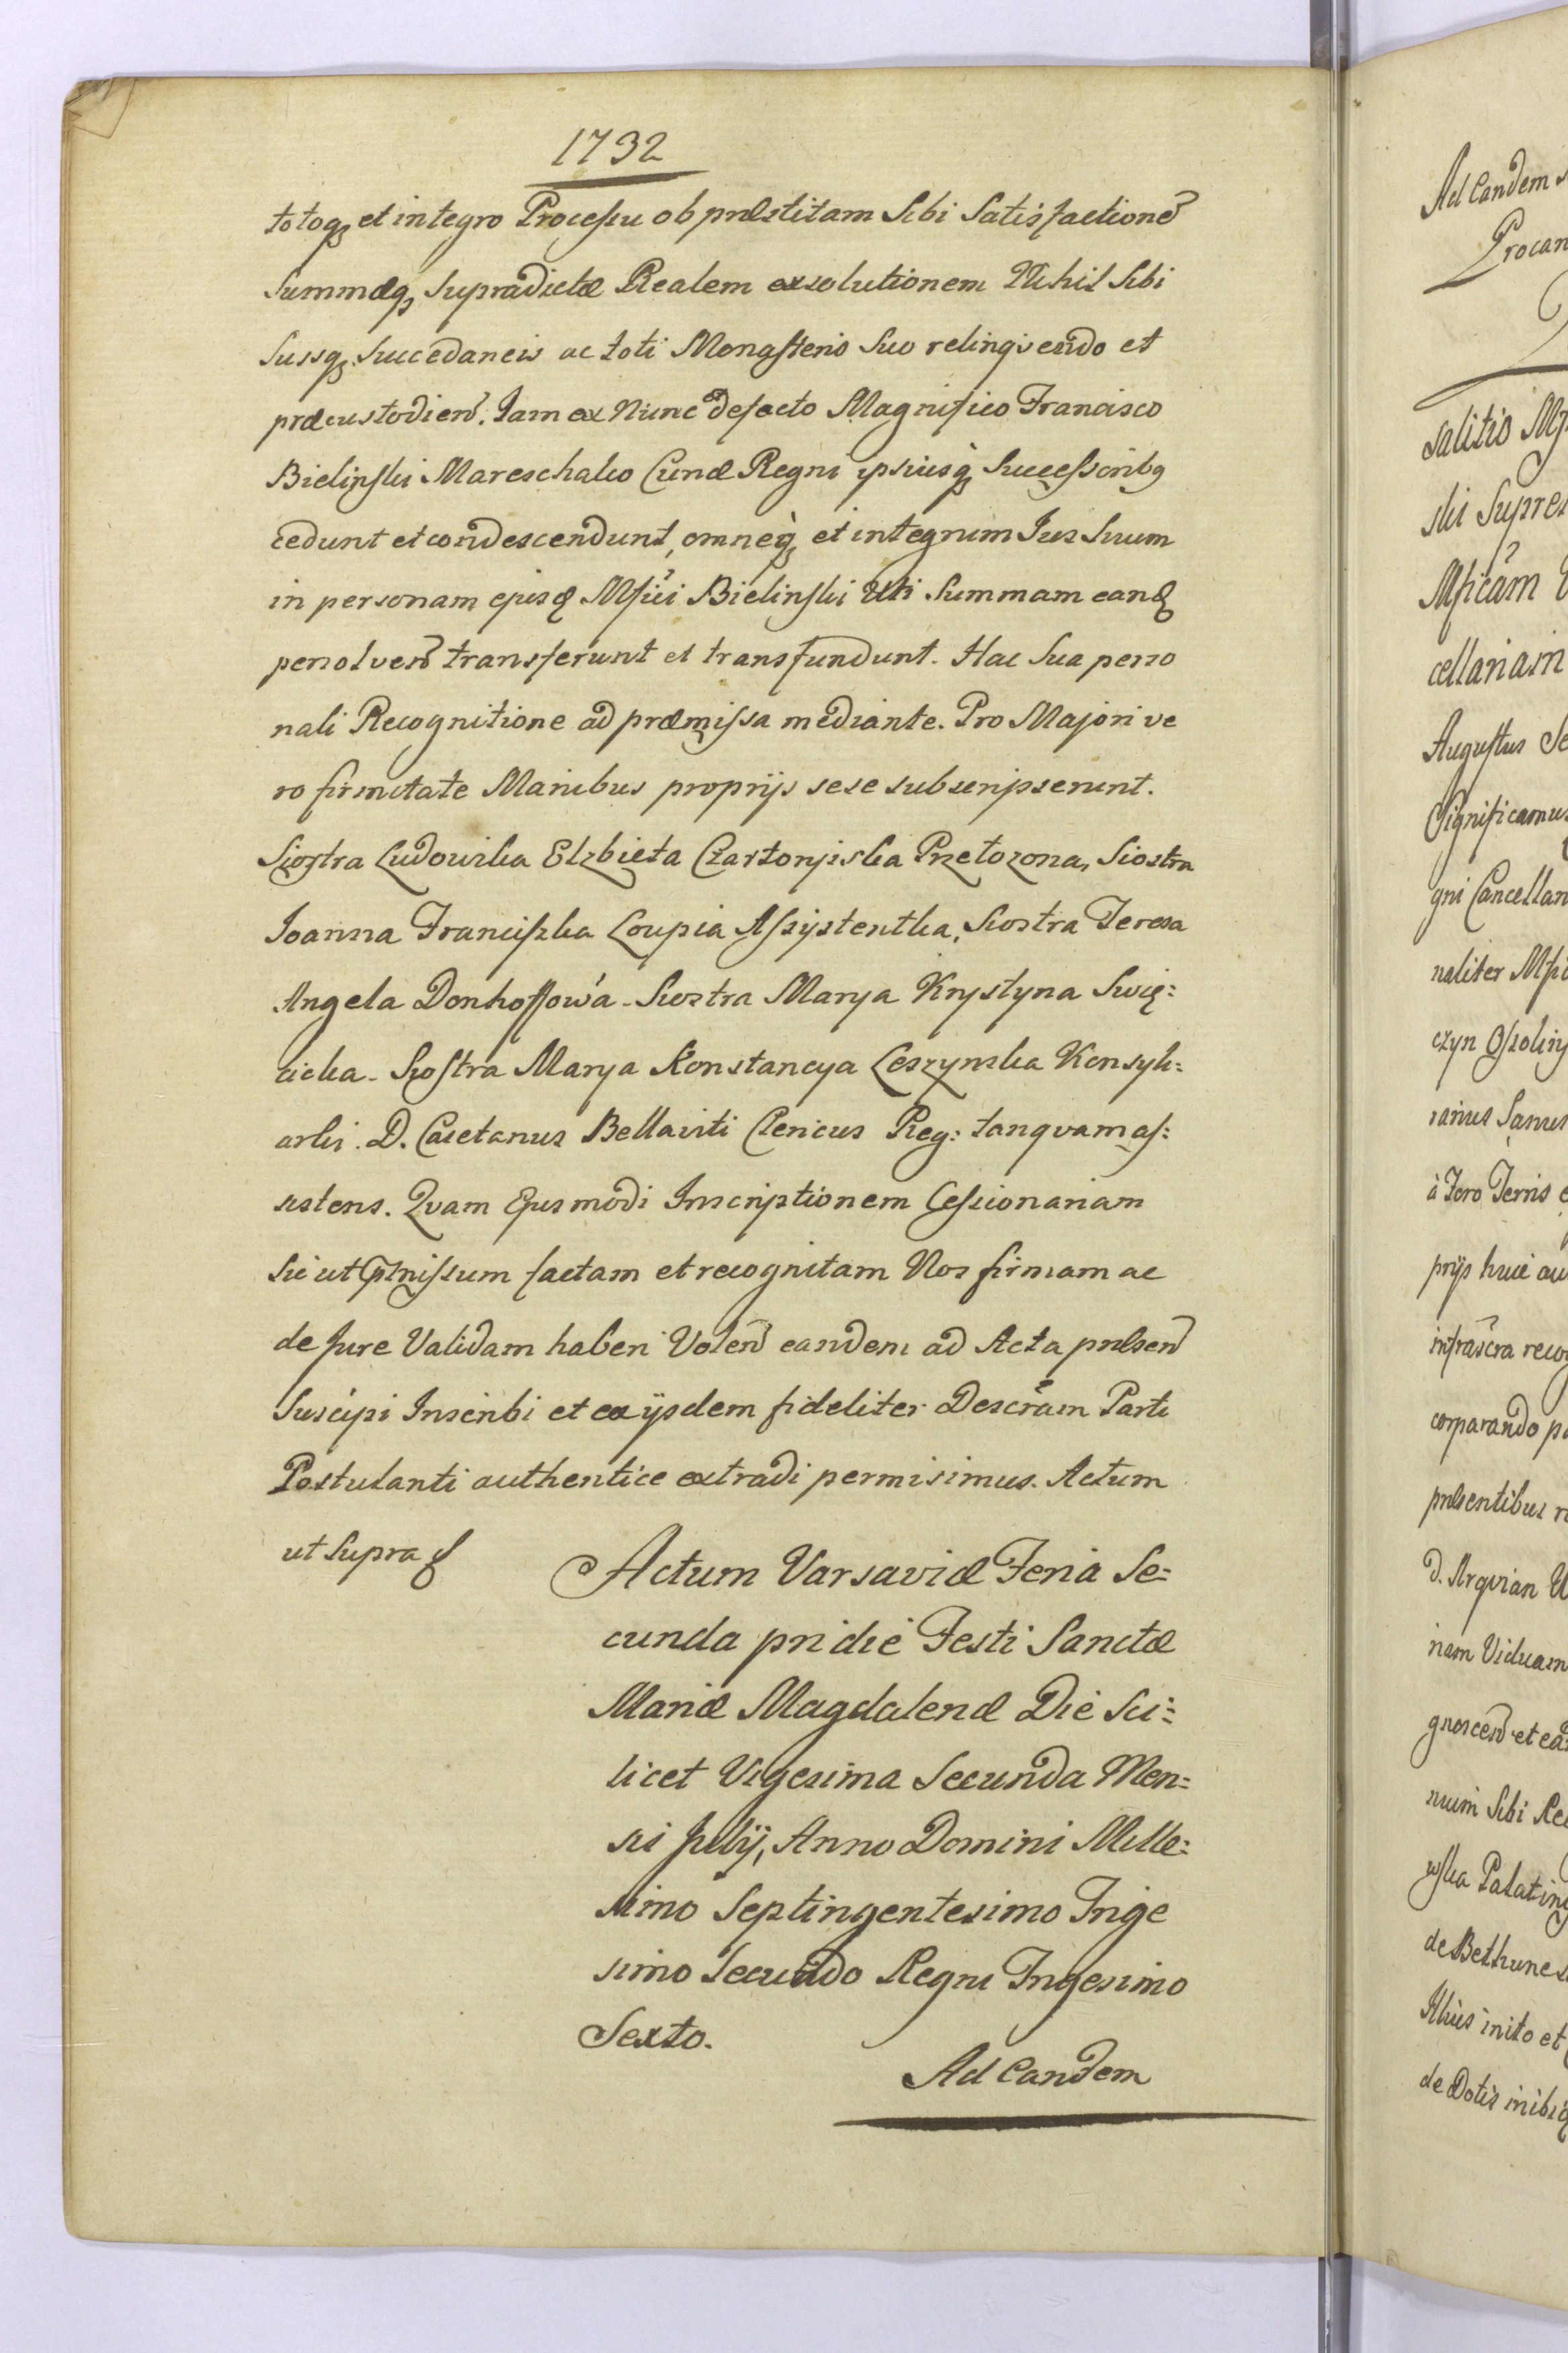 1732
totoq3 et integro Processu ob pnlstitam Sibi Satisfactione
Summæq3 Supradictæ Realem exsolutionem Nihil Sibi
Suisq3 Succedaneis ac toti Monasterio Suo relinqvendo et
præcustodien. Iam ex Nunc defacto Magnifico Francisco
Bielinski Mareschalco Curiæ Regni ipsiusq3 Successoribq
cedunt et condescendunt, omneq3 et integrum Ius Suum
in personam ejusd Mfici Bielinski Uti Summam eand
persolven transferunt et transfundunt. Hac Sua perso
nali Recognitione ad præmissa mediante. Pro Majori ve
ro firmitate Manibus proprijs sese subscripserunt.
Siostra Ludowika Elzbieta Czartoryiska Przełozona, Siostra
Ioanna Franciszka Loupia Assystentka, Siostra Teresa
Angela Donhoffowa - Siostra Marya Krystyna Swię:
cicka - Siostra Marya Konstancya Leszynska Konsyli:
arki. D. Caietanus Bellaviti Clericus Reg: tanqvam as:
sistens. Qvam Ejusmodi Inscriptionem Cessionariam
Sicut pmissum factam et recognitam Nos firmam ac
de Jure Validam haberi Volen eandem ad Acta pnlsen
Suscipi Inscribi et ex ijsdem fideliter Descram Parti
Postulanti authentice extradi permisimus. Actum
ut Supra
Actum Varsaviæ Feria Se:
cunda pridie Festi Sanctæ
Mariæ Magdalenæ Die Sci:
licet Vigesima Secunda Men:
sis Julij, Anno Domini Mille:
simo Septingentesimo Trige
simo Secundo Regni Trigesimo
Sexto.
Ad Eandem
Ad Eandem
Procan
salitio
ski Supre
Mficam
cellariam
Augustus Se
Significamus
gni Cancellari
naliter Mfic
czyn Ossoliny
rarius Sanus
à Foro Terris
prijs huic
infrascra reco
comparando
pnlsentibus
d'Arqvian
nam Viduam
gnoscen et ea
nuim Sibi Re
wska Palatin
de Bethune
Illius inito et
de Dotis inibi